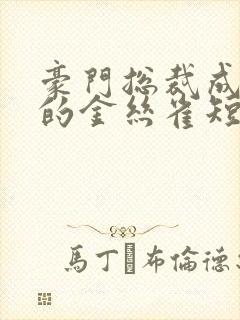 豪門總裁成
的金絲雀短
馬丁·布倫德